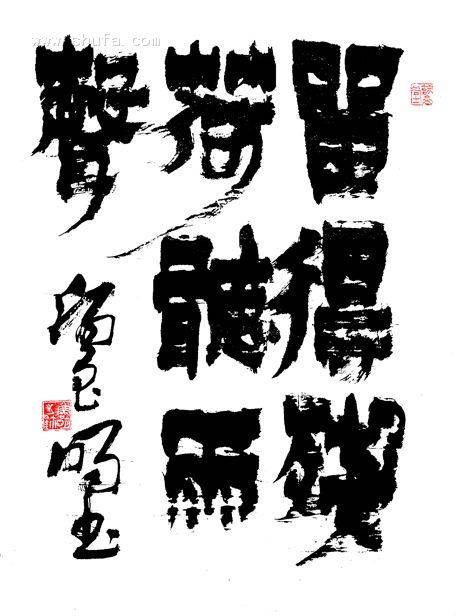 www.shufa.com
留得殘
荷聽雨
聲